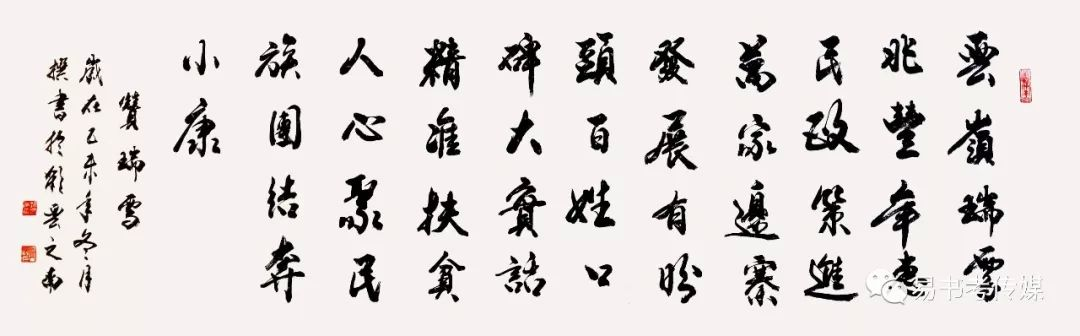 雲嶺瑞雪
兆豐年惠
民政策進
萬家邊寨
發展有盼
頭百姓口
碑大實話
精准扶貧
人心聚民
族團結奔
小康
贊瑞雪
歲在乙未年冬月
撰書於彩雲之南
易书考传媒